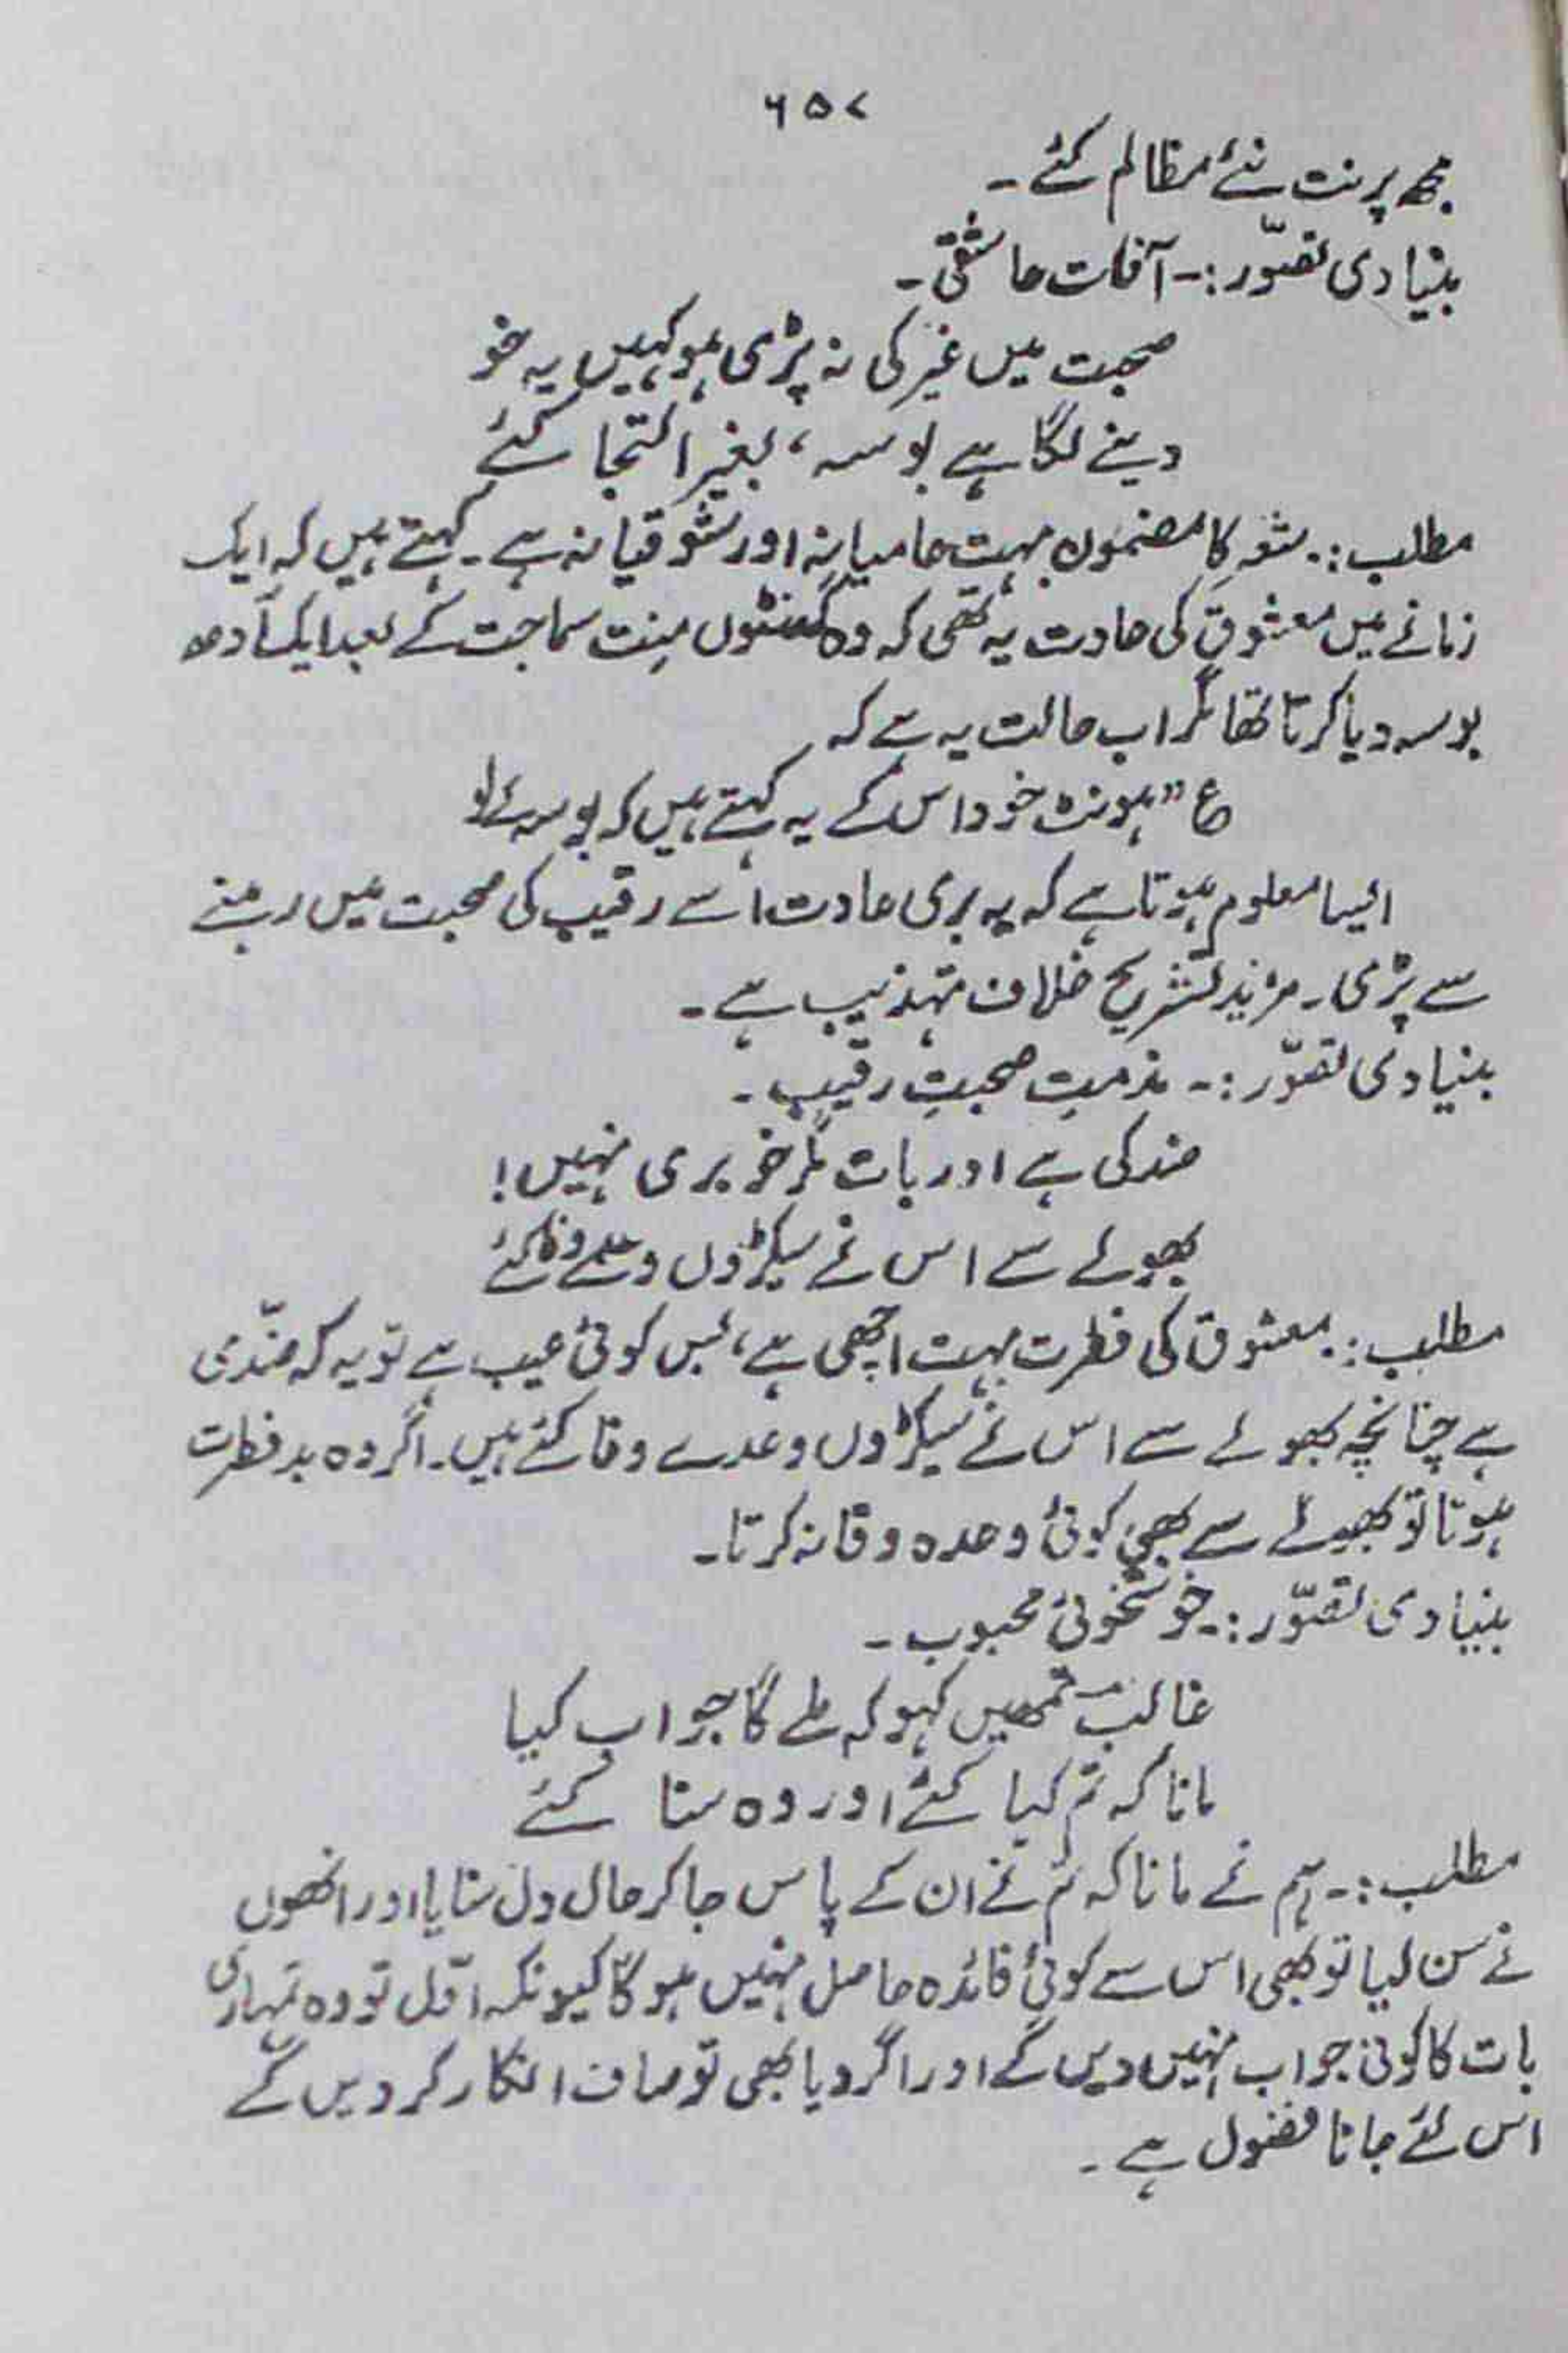 ۶۵۷
مجھ پر نت نئے مظالم کئے۔
بنیادی تصوّر:۔ آفات عاشقی۔
صحبت میں غیر کی نہ پڑی ہو کہیں یہ خو
دینے لگا ہے بوسہ، بغیر التجا کئے
مطلب:۔ شعر کا مضمون بہت عامیانہ اور سُوقیانہ ہے۔ کہتے ہیں کہ ایک
زمانے میں معشوق کی عادت یہ تھی کہ وہ گھنٹوں منت سماجت کے بعد ایک آدھ
بوسہ دیا کرتا تھا مگر اب حالت یہ ہے کہ
ع "ہونٹ خود اس کے یہ کہتے ہیں کہ بوسہ لے لو
ایسا معلوم ہوتا ہے کہ یہ بری عادت اسے رقیب کی صحبت میں رہنے
سے پڑی۔ مزید تشریح خلاف تہذیب ہے۔
بنیادی تصوّر:۔ مذمتِ صحبتِ رقیب۔
ضد کی ہے اور بات مگر خو بری نہیں!
بھولے سے اس نے سیکڑوں وعدے وفا کئے
مطلب:۔ معشوق کی فطرت بہت اچھی ہے، بس کوئی عیب ہے تو یہ کہ ضدّی
ہے چنانچہ بھولے سے اس نے سیکڑوں وعدے وفا کئے ہیں۔ اگر وہ بد فطرت
ہوتا تو بھولے سے بھی کوئی وعدہ وفا نہ کرتا۔
بنیادی تصوّر:۔ خوشخوئی محبوب۔
غالبؔ تمھیں کہو کہ ملے گا جواب کیا
مانا کہ تم کہا کئے اور وہ سنا کئے
مطلب:۔ ہم نے مانا کہ تم نے ان کے پاس جا کر حال دل سنایا اور انھوں
نے سن لیا تو بھی اس سے کوئی فائدہ حاصل نہیں ہو گا کیونکہ اوّل تو وہ تمہاری
بات کا کوئی جواب نہیں دیں گے اور اگر دیا بھی تو صاف انکار کر دیں گے
اس لئے جانا فضول ہے۔